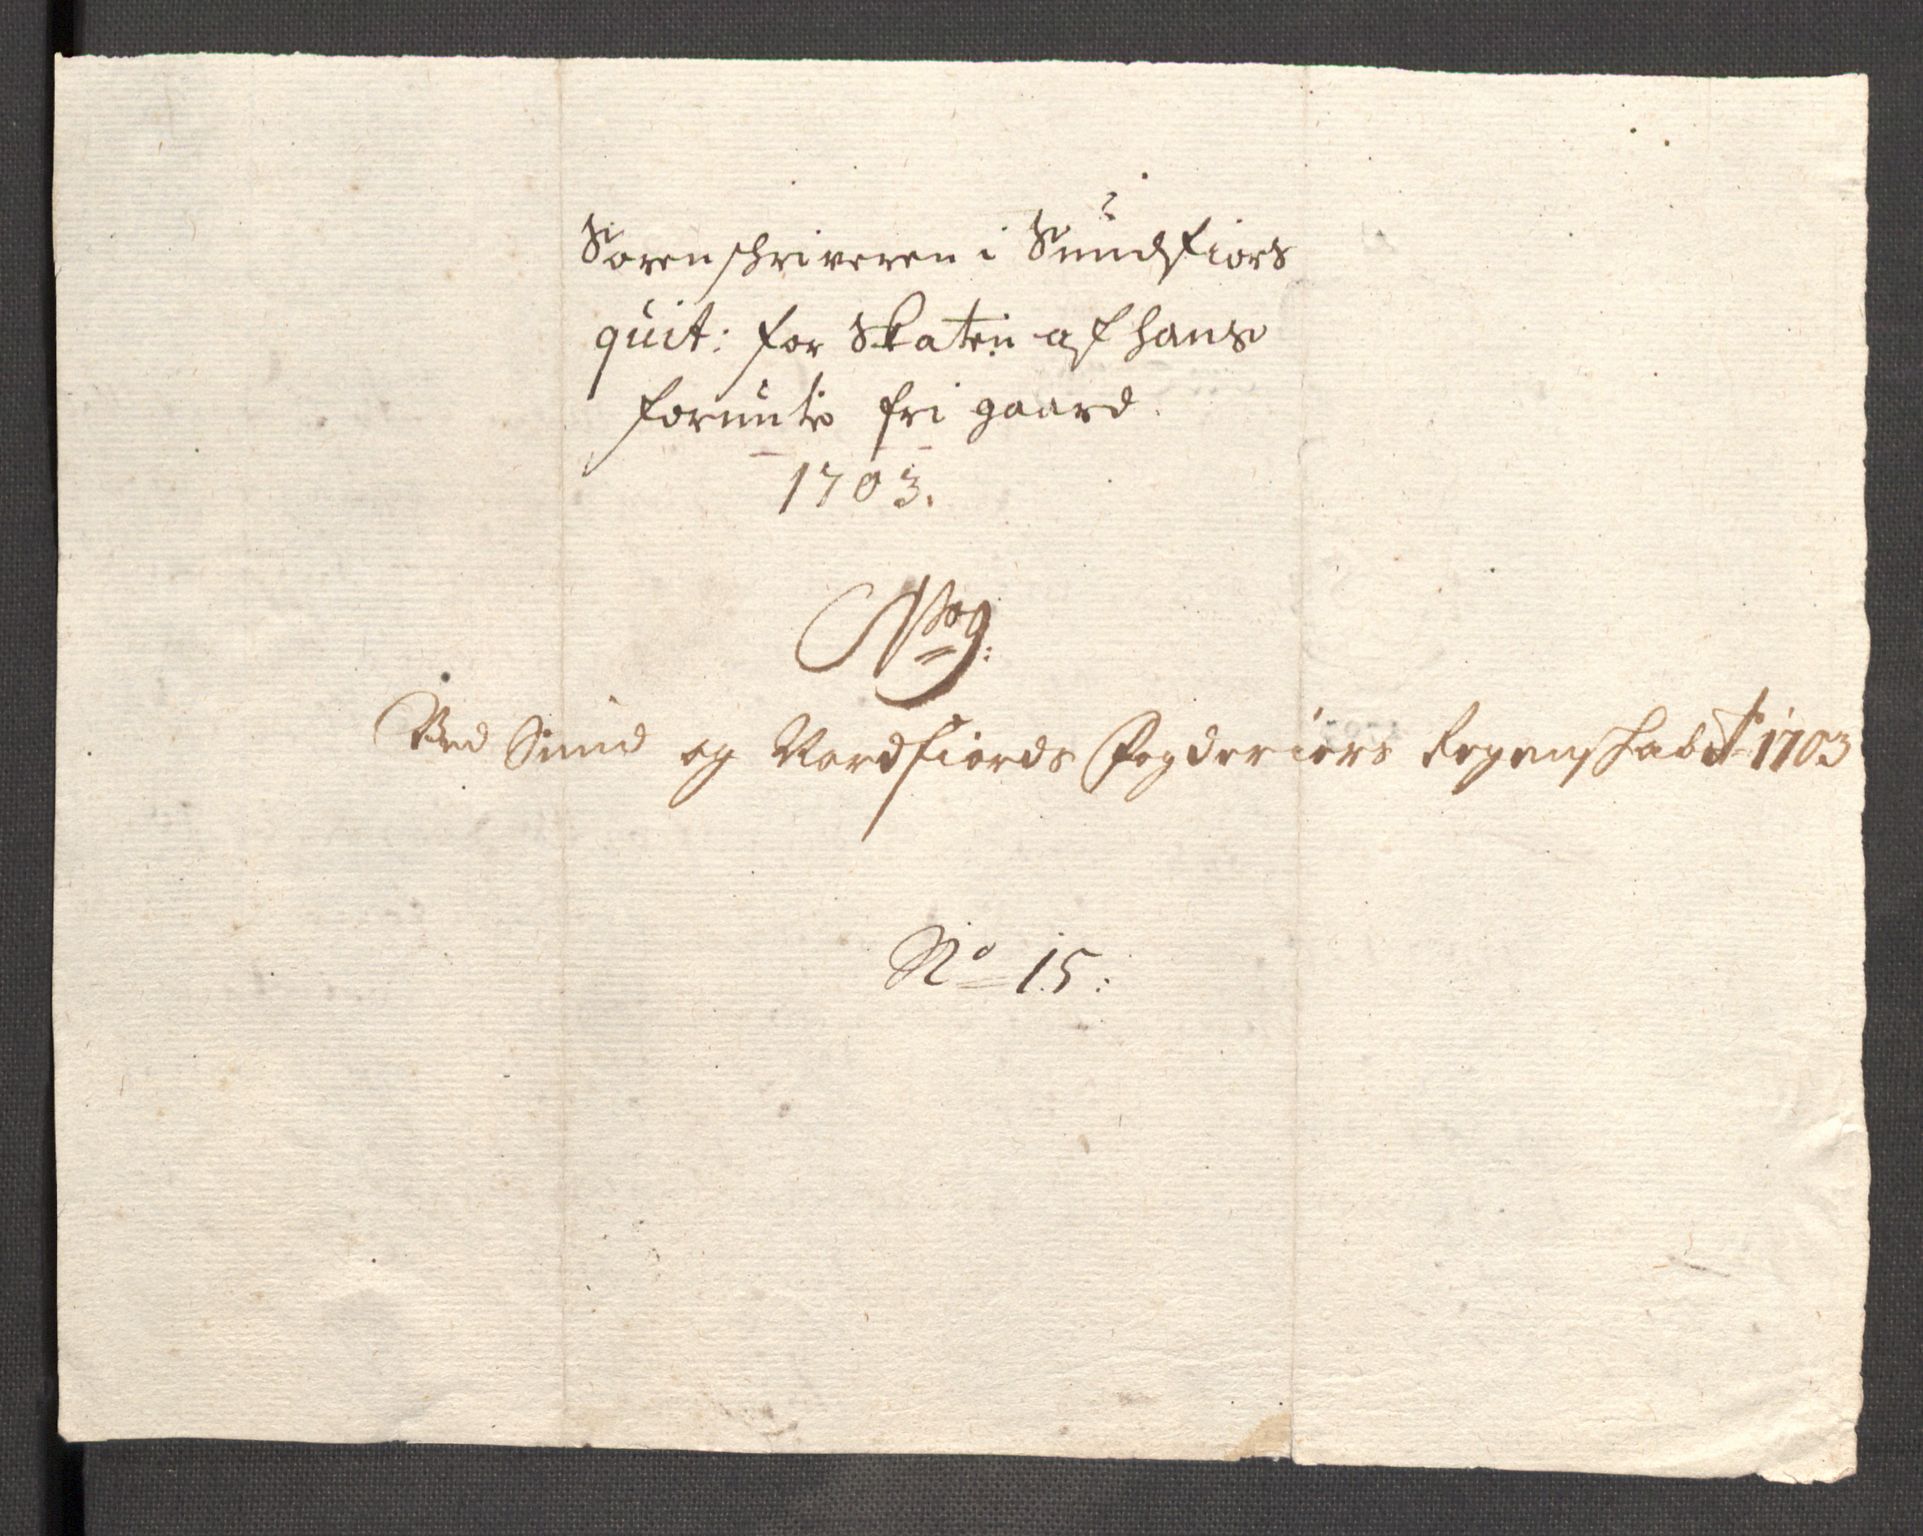 Sorenschriveren i Sundfiors
quit: for Skaten af hans
formente fri gaard.
1703.
No 9:
Ved Sund og Nordfiords Fogderiers Regenskab Ao 1703
No 15: